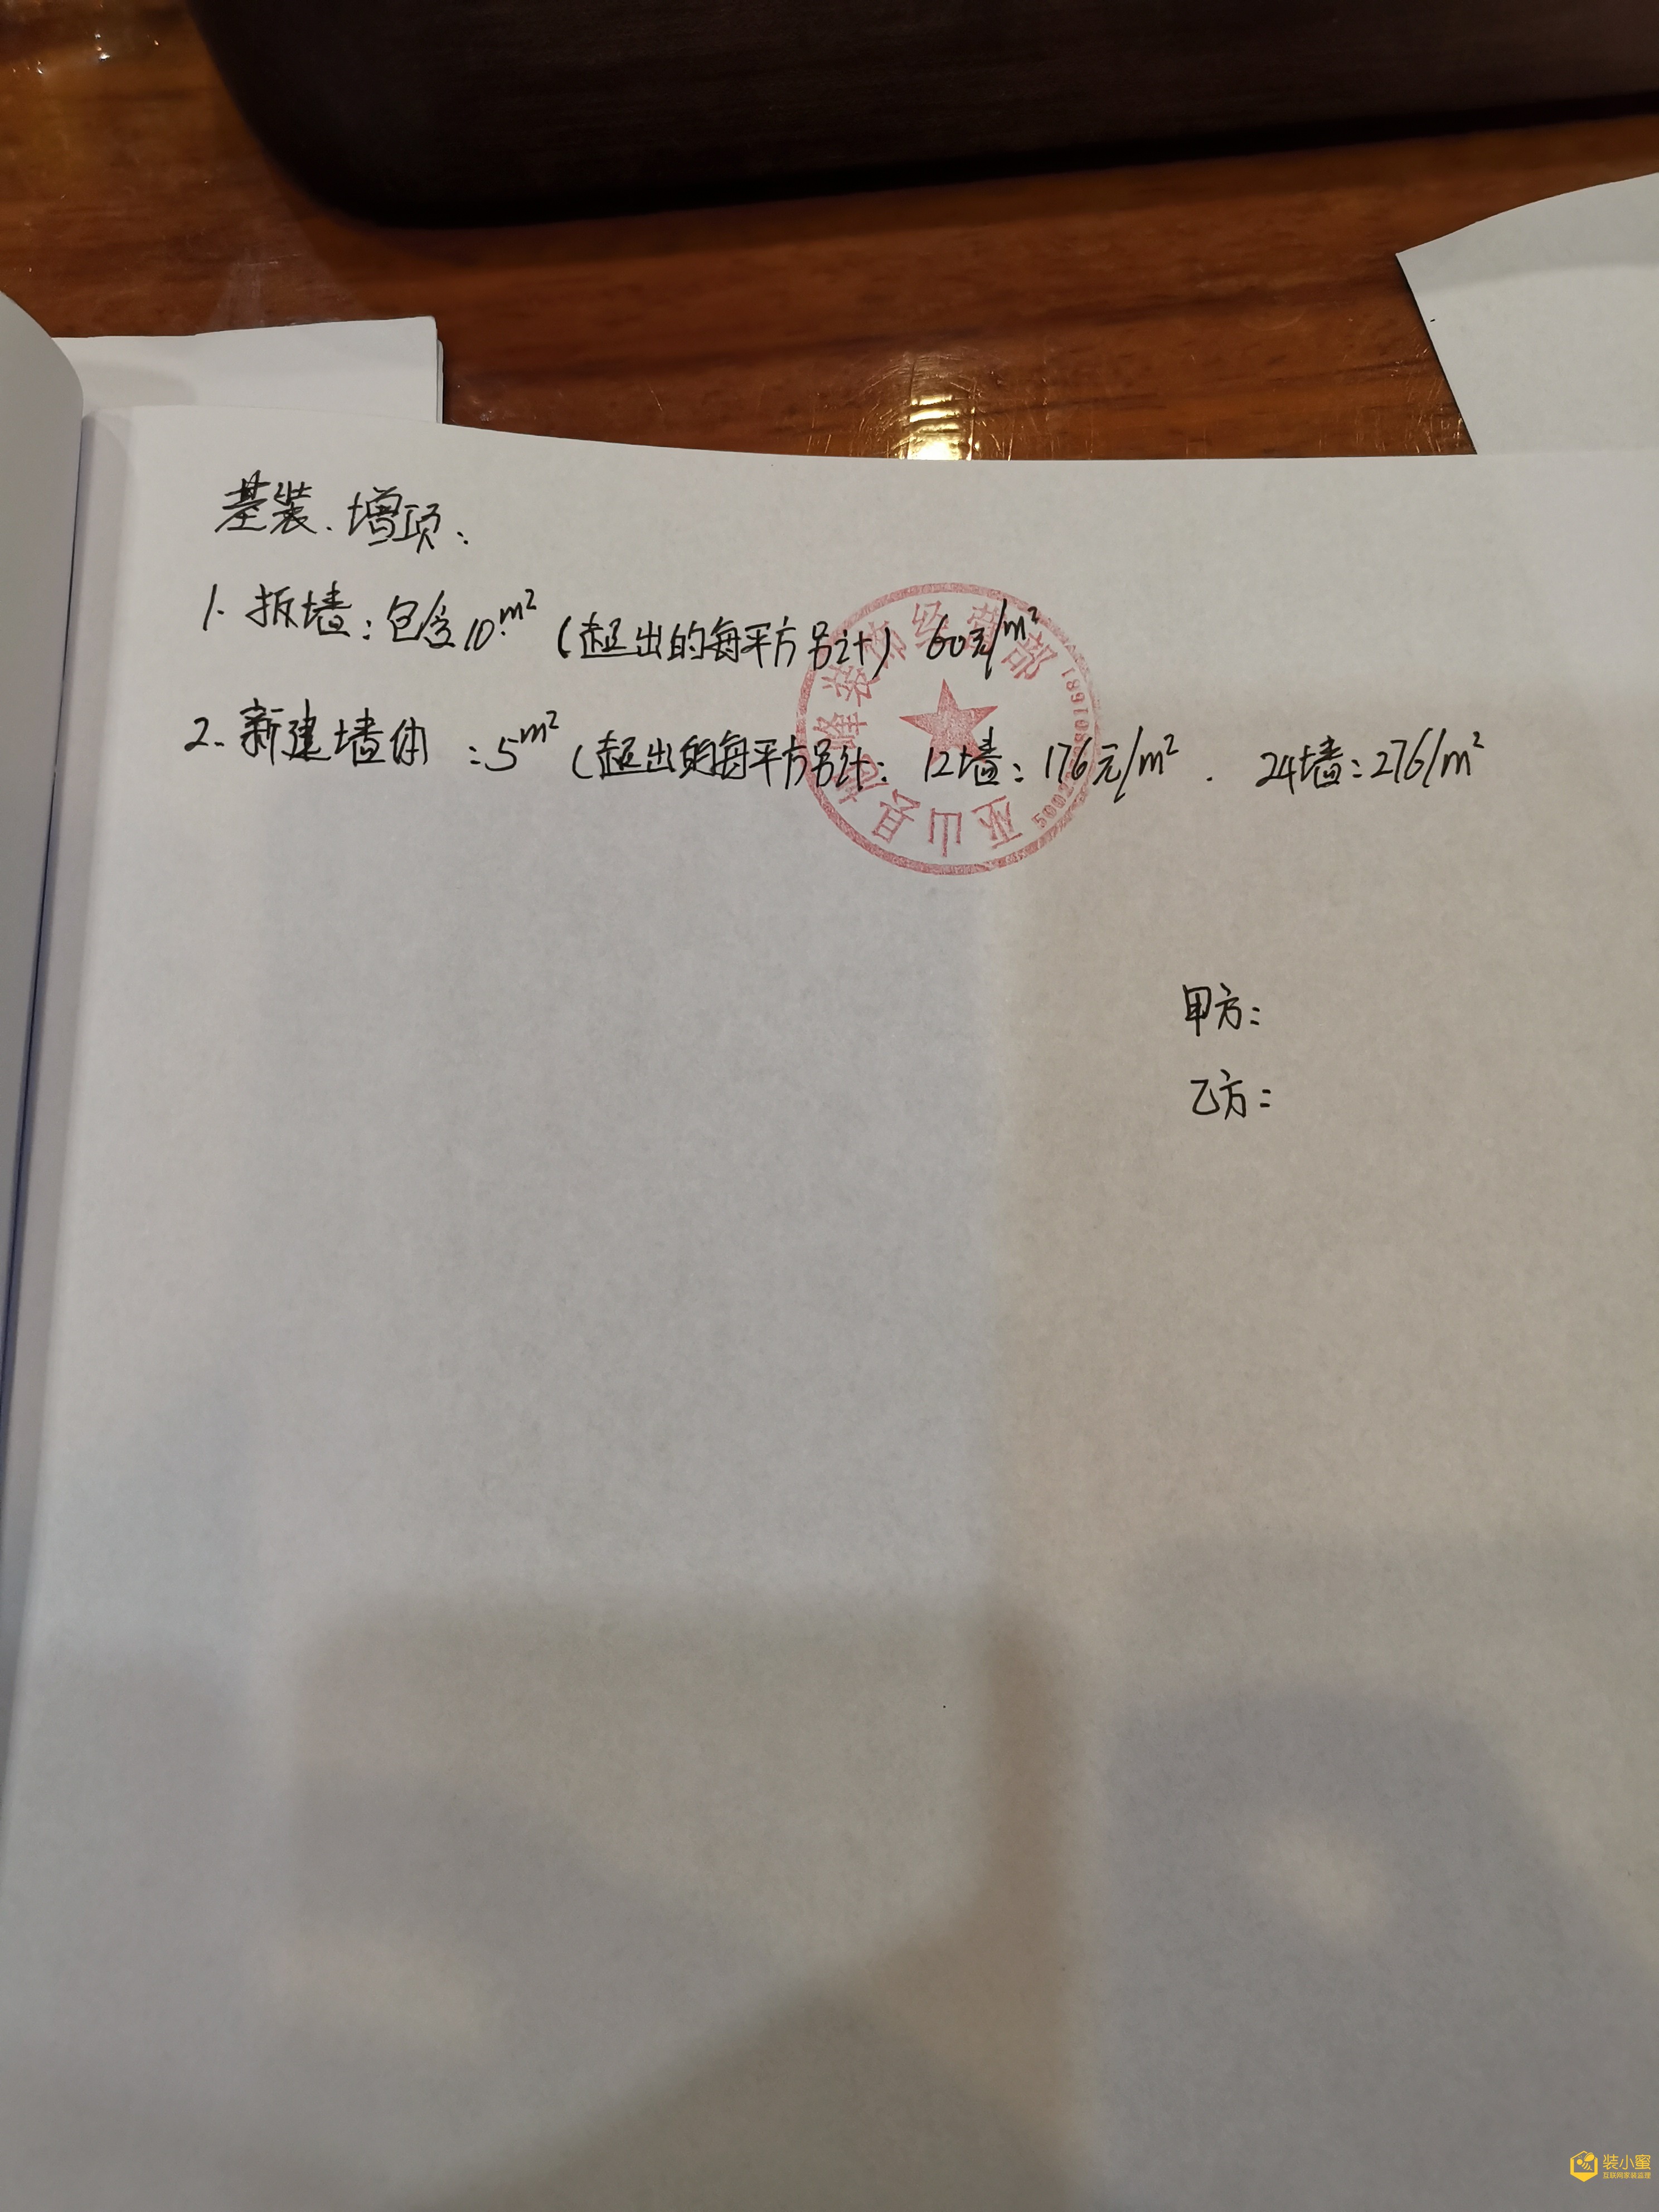 基装、增项：
1. 拆墙：包含10m² (超出的每平方另计) 60元/m²
2. 新建墙体：5m² (超出的每平方另计：12墙：176元/m². 24墙：276/m²
巫山县 峰装饰经营部
甲方：
乙方：
装小蜜
互联网家装监理